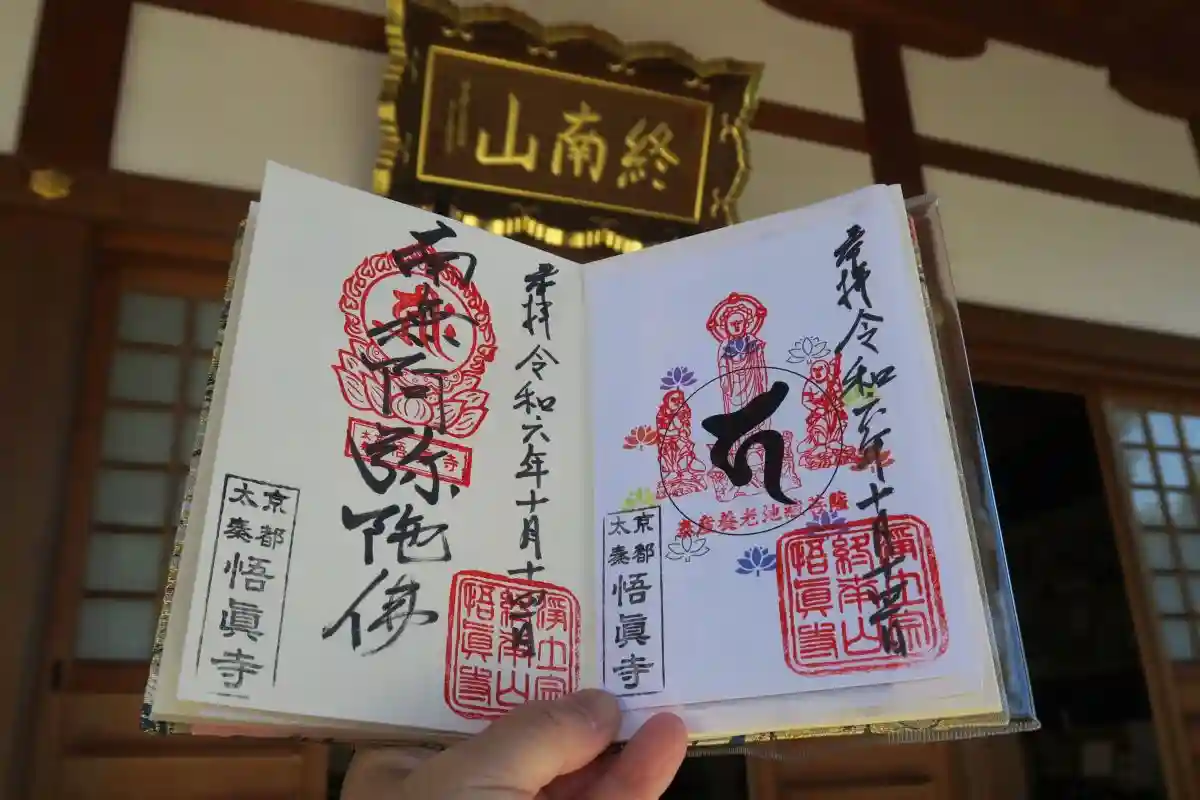 終南山
奉拝 令和六年十月十四日
南無阿弥陀佛
京都
太秦
悟眞寺
淨土宗
終南山
悟眞寺
奉拝 令和六年十月十四日
京都
太秦
悟眞寺
淨土宗
終南山
悟眞寺